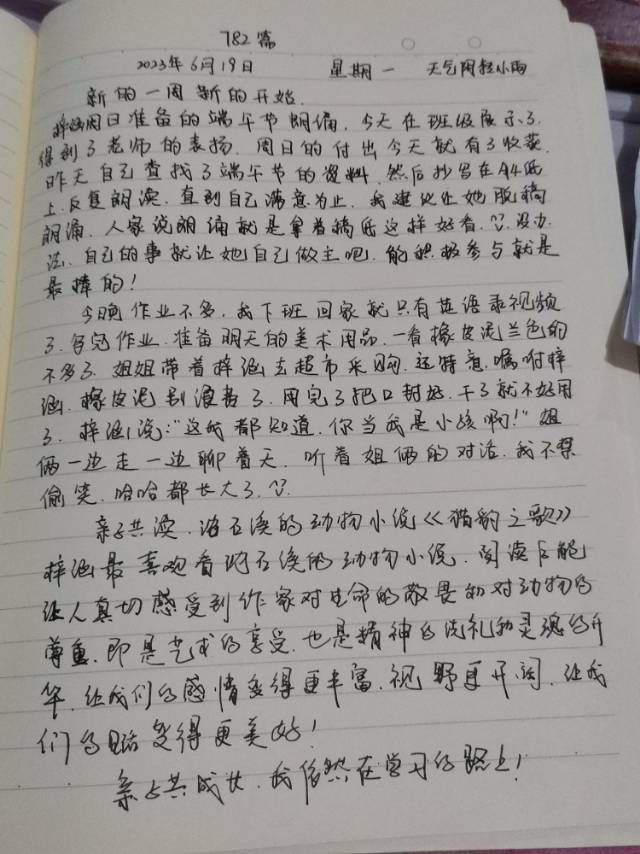 782篇
2023年6月19日 星期一 天气阴转小雨
新的一周新的开始.
梓涵周日准备的端午节朗诵,今天在班级展示了.
得到了老师的表扬,周日的付出今天就有了收获.
昨天自己查找了端午节的资料,然后抄写在A4纸
上,反复朗读,直到自己满意为止,我建议让她脱稿
朗诵,人家说朗诵就是拿着稿纸这样好看,没办
法,自己的事就让她自己做主吧,能积极参与就是
最棒的!
今晚作业不多,我下班回家就只有英语录视频
了.写完作业,准备明天的美术用品,一看橡皮泥兰色的
不多了,姐姐带着梓涵去超市采购,还特意嘱咐梓
涵,橡皮泥别浪费了,用完了把口封好,干了就不好用
了.梓涵说:"这我都知道,你当我是小孩啊!"姐
俩一边走一边聊着天,听着姐俩的对话,我不禁
偷笑,哈哈都长大了.
亲子共读,沈石溪的动物小说《猎豹之歌》
梓涵最喜观看沈石溪的动物小说,阅读后能
让人真切感受到作家对生命的敬畏和对动物的
尊重,即是艺术的享受,也是精神的洗礼和灵魂的升
华,让我们的感情变得更丰富,视野更开阔,让我
们的生活变得更美好!
亲子共成长,我依然在学习的路上!